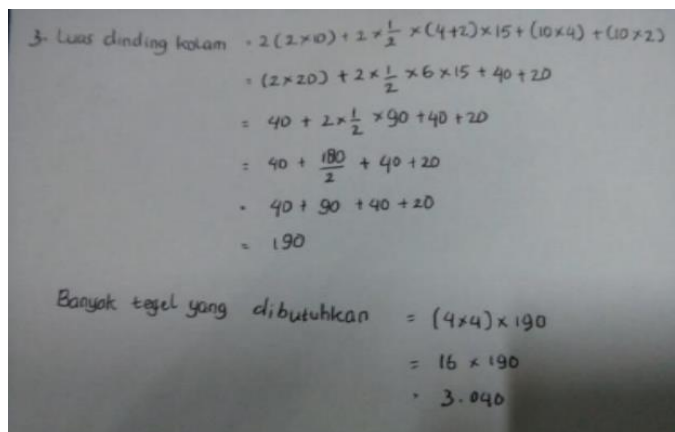 3. Luas dinding kolam = 2(2×10) + 2×½ ×(4+2)×15 + (10×4) + (10×2)
= (2×20) + 2×½ ×6×15 + 40 + 20
= 40 + 2×½ ×90 + 40 + 20
= 40 + 180/2 + 40 + 20
= 40 + 90 + 40 + 20
= 190
Banyak tegel yang dibutuhkan = (4×4) × 190
= 16 × 190
= 3.040